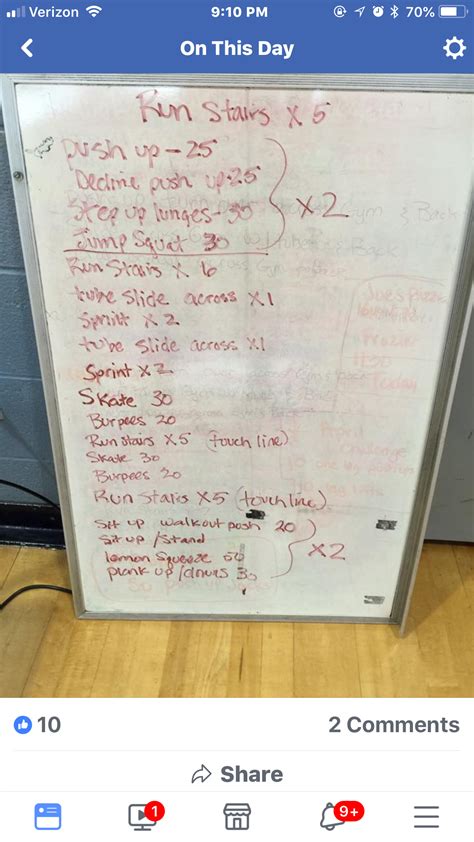 Verizon 9:10 PM 70%
On This Day
Run Stairs x 5
push up - 25
Decline push up 25
Step up lunges - 30
x2
Jump Squat 30
Run Stairs x 6
tube slide across x1
Sprint x 2
tube slide across x1
Sprint x2
Skate 30
Burpees 20
Run stairs x5 (touch line)
Skate 30
Burpees 20
Run Stairs x5 (touch line)
Sit up walkout push 20
Sit up /stand
x2
lemon squeeze 50
plank up/downs 30
10
2 Comments
Share
1
9+